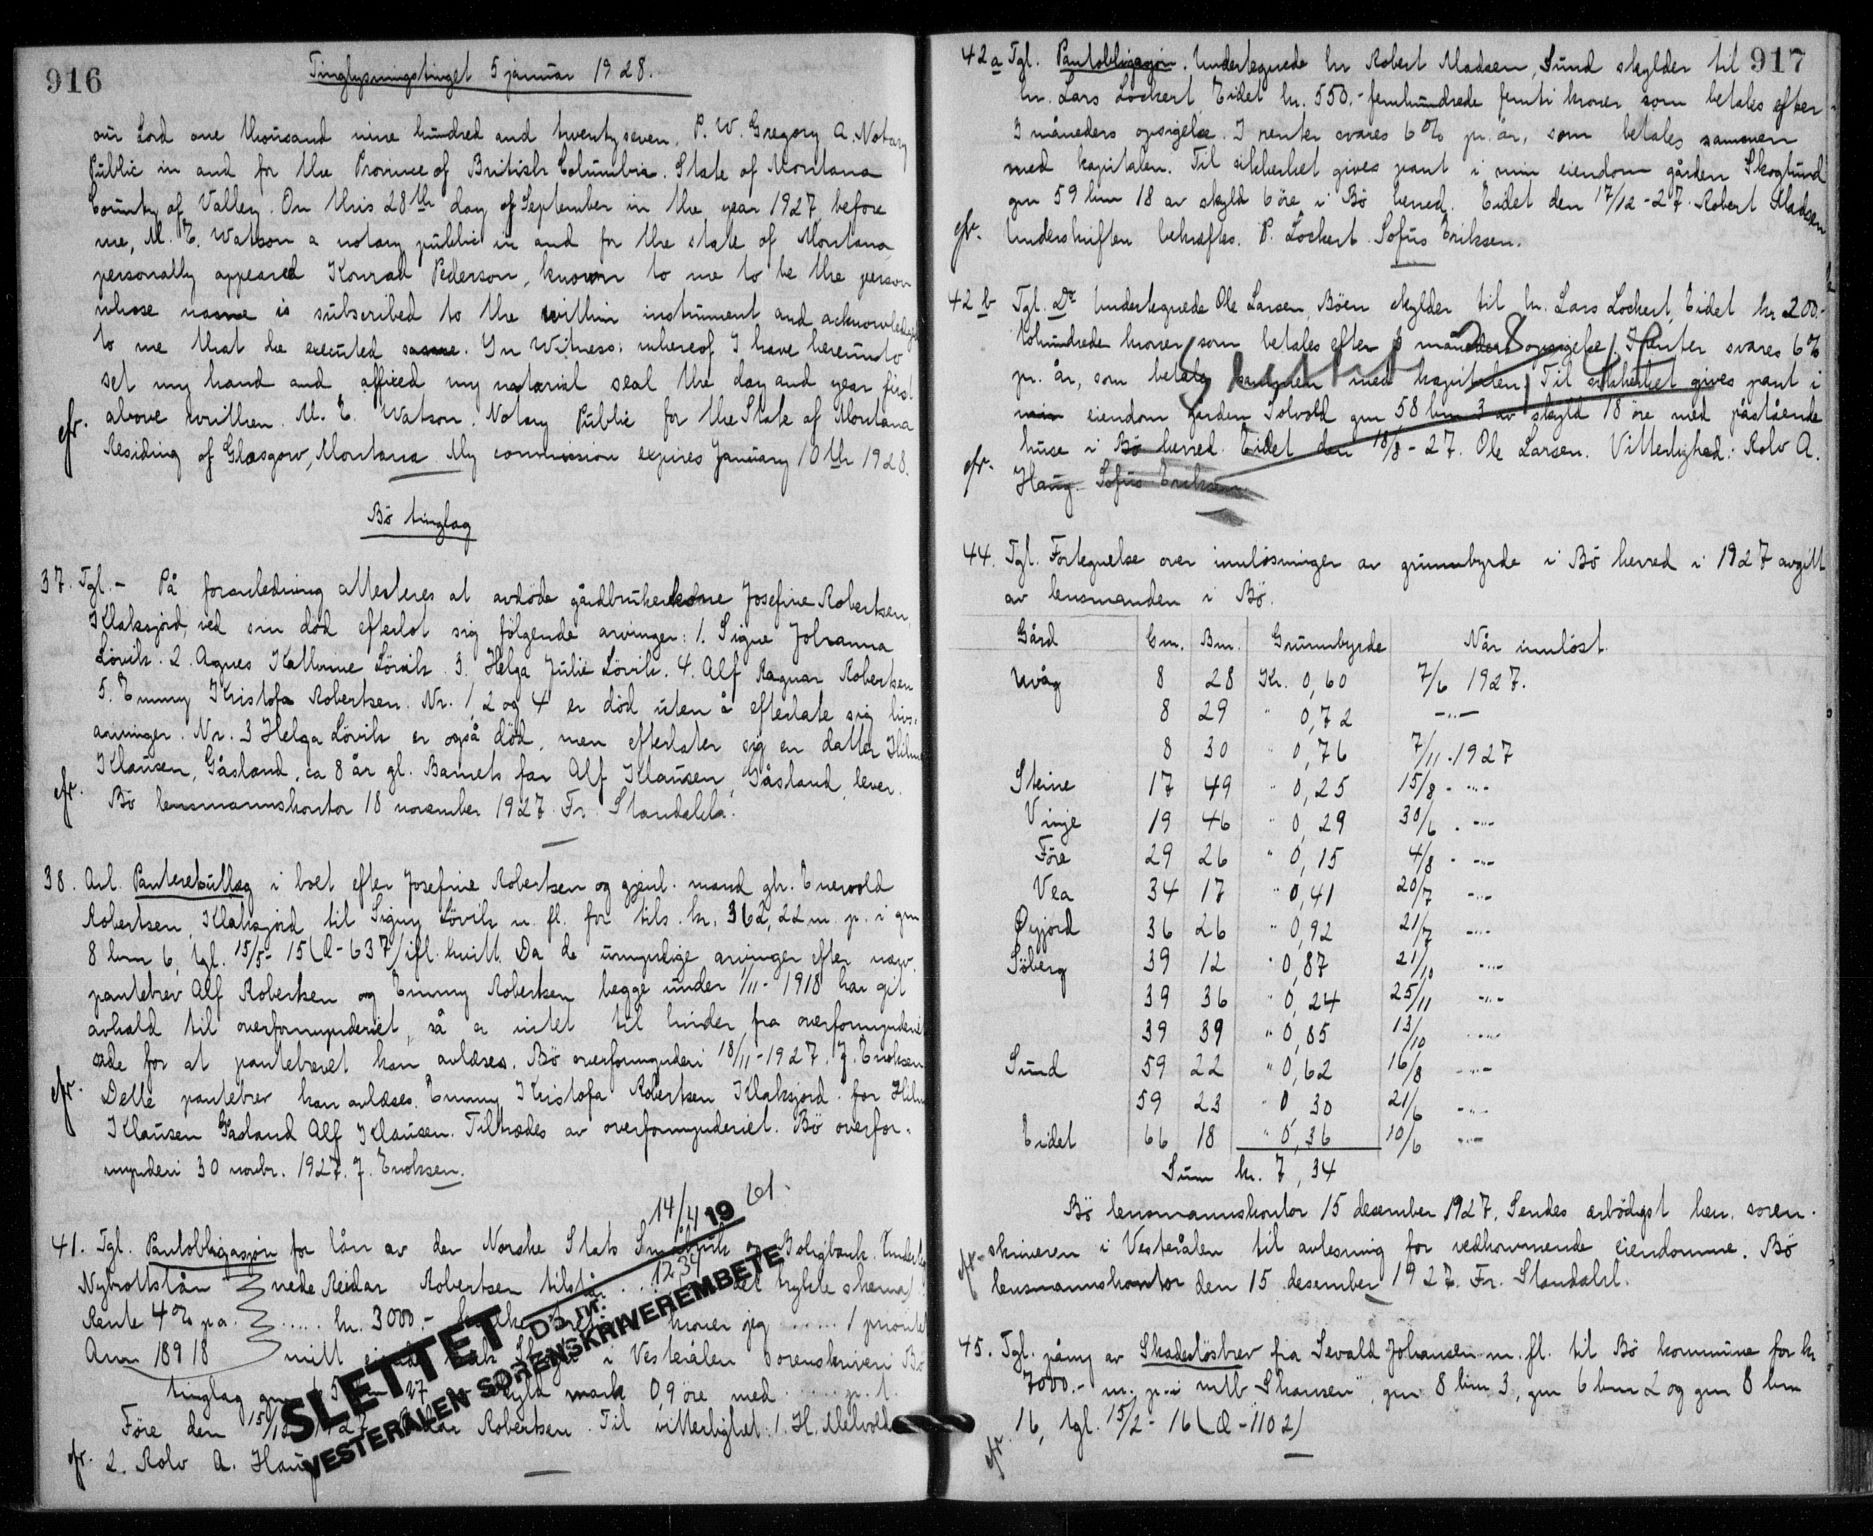 916
Tinglysningstinget 5 januar 1928.
our Lord one thousand nine hundred and twenty seven. P. W. Gregory A. Notary
Public in and for the Province of British Columbia. State of Montana
County of Valley. On this 28th day of September in the year 1927 before
me, M. E. Watson a notary public in and for the state of Montana
personally appeared Konrad Pederson, known to me to be the person
whose name is subscribed to the within instrument and acknowledged
to me that he executed same. In Witness: whereof I have hereunto
set my hand and affixed my notarial seal the day and year first
above written. M. E. Watson. Notary Public for the State of Montana
cfr.
Residing of Glasgow, Montana My commission expires January 10th 1928.
Bö tinglag
37. Tgl. - På foranledning attesteres at avdöde gårdbrukerkone Josefine Robertsen
Klaksjord, ved sin död efterlot sig fölgende arvinger: 1. Signe Johanna
Lövik. 2. Agnes Katrine Lövik. 3. Helga Julie Lövik. 4. Alf Ragnar Robertsen
5. Emmy Kristofa Robertsen. Nr. 1, 2 og 4 er död uten å efterlate sig livs-
arvinger. Nr. 3 Helga Lövik er også död, men efterlater sig en datter
Klausen, Gåsland, ca 8 år gl. Barnets far Alf Klausen, Gåsland, lever.
cfr. Bö lensmannskontor 18 november 1927. Fr. Standahl.
38. Avl. Panterekvllæg i boet efter Josefine Robertsen og gjenl. mand gbr. Enevold
Robertsen, Klaksjord til Signy Lövik m. fl. for tils. kr. 362,22 m. p. i gnr
8 bnr 6, tgl. 15/5- 15 (Q-637) ifl. kvitt. Da de umyndige arvinger efter nævn.
pantebrev Alf Robertsen og Emmy Robertsen begge under 1/11- 1918 har git
avkald til overformynderiet, så er intet til hinder fra overformynderiets
side for at pantebrevet kan avlæses. Bö overformynderi 18/11-1927. J. Enoksen
cfr. Dette pantebrev kan avlæses. Emmy Kristofa Robertsen Klaksjord. for
Klausen Gåsland Alf Klausen. Tiltrædes av overformynderiet. Bö overfor-
mynderi 30 novbr. 1927. J. Enoksen.
14/4 19 61.
41. Tgl. Pantobligasjon for lån av den Norske Stats og Boligbank.
Nybrottslån nede Reidar Robertsen tilstå 1234 det trykte skema)
Rente 4% p.a. ...... kr. 3000.- kroner jeg ...... 1 priorit
Ann 18918 mitt i Vesterålen Sorenskriveri Bö
tinglag gnr skyld mark 0,9 öre med ...... p. t.
Före den 15/12 Robertsen. Til vitterlighet: 1. H.
cfr. 2. Rolv A. Haug
SLETTET D.b. nr.
VESTERÅLEN SØRENSKRIVEREMBETE
917
42 a Tgl. Pantobligasjon. Undertegnede hr Robert Madsen, Sund skylder til
hr. Lars Lockert Eidet kr. 550.- femhundrede femti kroner som betales efter
3 måneders opsigelse. I renter svares 6% pr. år, som betales sammen
med kapitalen. Til sikkerhet gives pant i min eiendom gården Skoglund
gnr 59 bnr 18 av skyld 6 öre i Bö herred. Eidet den 17/12 -27. Robert Madsen
cfr. Underskriften bekræftes. P. Lockert. Sofus Eriksen.
42 b Tgl. Do Undertegnede Ole Larsen, Böen skylder til hr. Lars Lockert, Eidet kr 200.-
tohundrede kroner som betales efter 3 måneders opsigelse. I renter svares 6%
pr. år, som betales sammen med kapitalen. Til sikkerhet gives pant i
min eiendom gården Solvold gnr 58 bnr 3 av skyld 18 öre med påstående
huse i Bö herred. Eidet den 18/8 - 27. Ole Larsen. Vitterlighed: Rolv A.
cfr. Haug. Sofus Eriksen
Slettet
44. Tgl. Fortegnelse over innlösninger av grunnbyrde i Bö herred i 1927 avgitt
av lensmanden i Bö.
Gård Gnr. Bnr. Grunnbyrde Når innlöst.
Uvåg 8 28 Kr. 0,60 7/6 1927.
8 29 " 0,72 -"-
8 30 " 0,76 7/11. 1927
Steine 17 49 " 0,25 15/8 - -"-
Vinje 19 46 " 0,29 30/6 . -"-
Före 29 26 " 0,15 4/8 - -"-
Vea 34 17 " 0,41 20/7 -"-
Öyjord 36 26 " 0,92 21/7 -"-
Söberg 39 12 " 0,87 21/10 -"-
39 36 " 0,24 25/11 -"-
39 39 " 0,85 13/10 -"-
Sund 59 22 " 0,62 16/8 -"-
59 23 " 0 30 21/6 -"-
Eidet 66 18 " 0,36 10/6 -"-
Sum kr. 7,34
Bö lensmannskontor 15 desember 1927. Sendes ærbödigst herr soren-
cfr. skriveren i Vesterålen til avlesning for vedkommende eiendomme. Bö
lensmannskontor den 15 desember 1927. Fr. Standahl.
45. Tgl. påny av Skadeslösbrev fra Sevald Johansen m. fl. til Bö kommune for kr
7000.- m. p. i mtb "Skansen", gnr 8 bnr 3, gnr 6 bnr 2 og gnr 8 bnr
cfr. 16, tgl. 15/2- 16 (Q-1102)